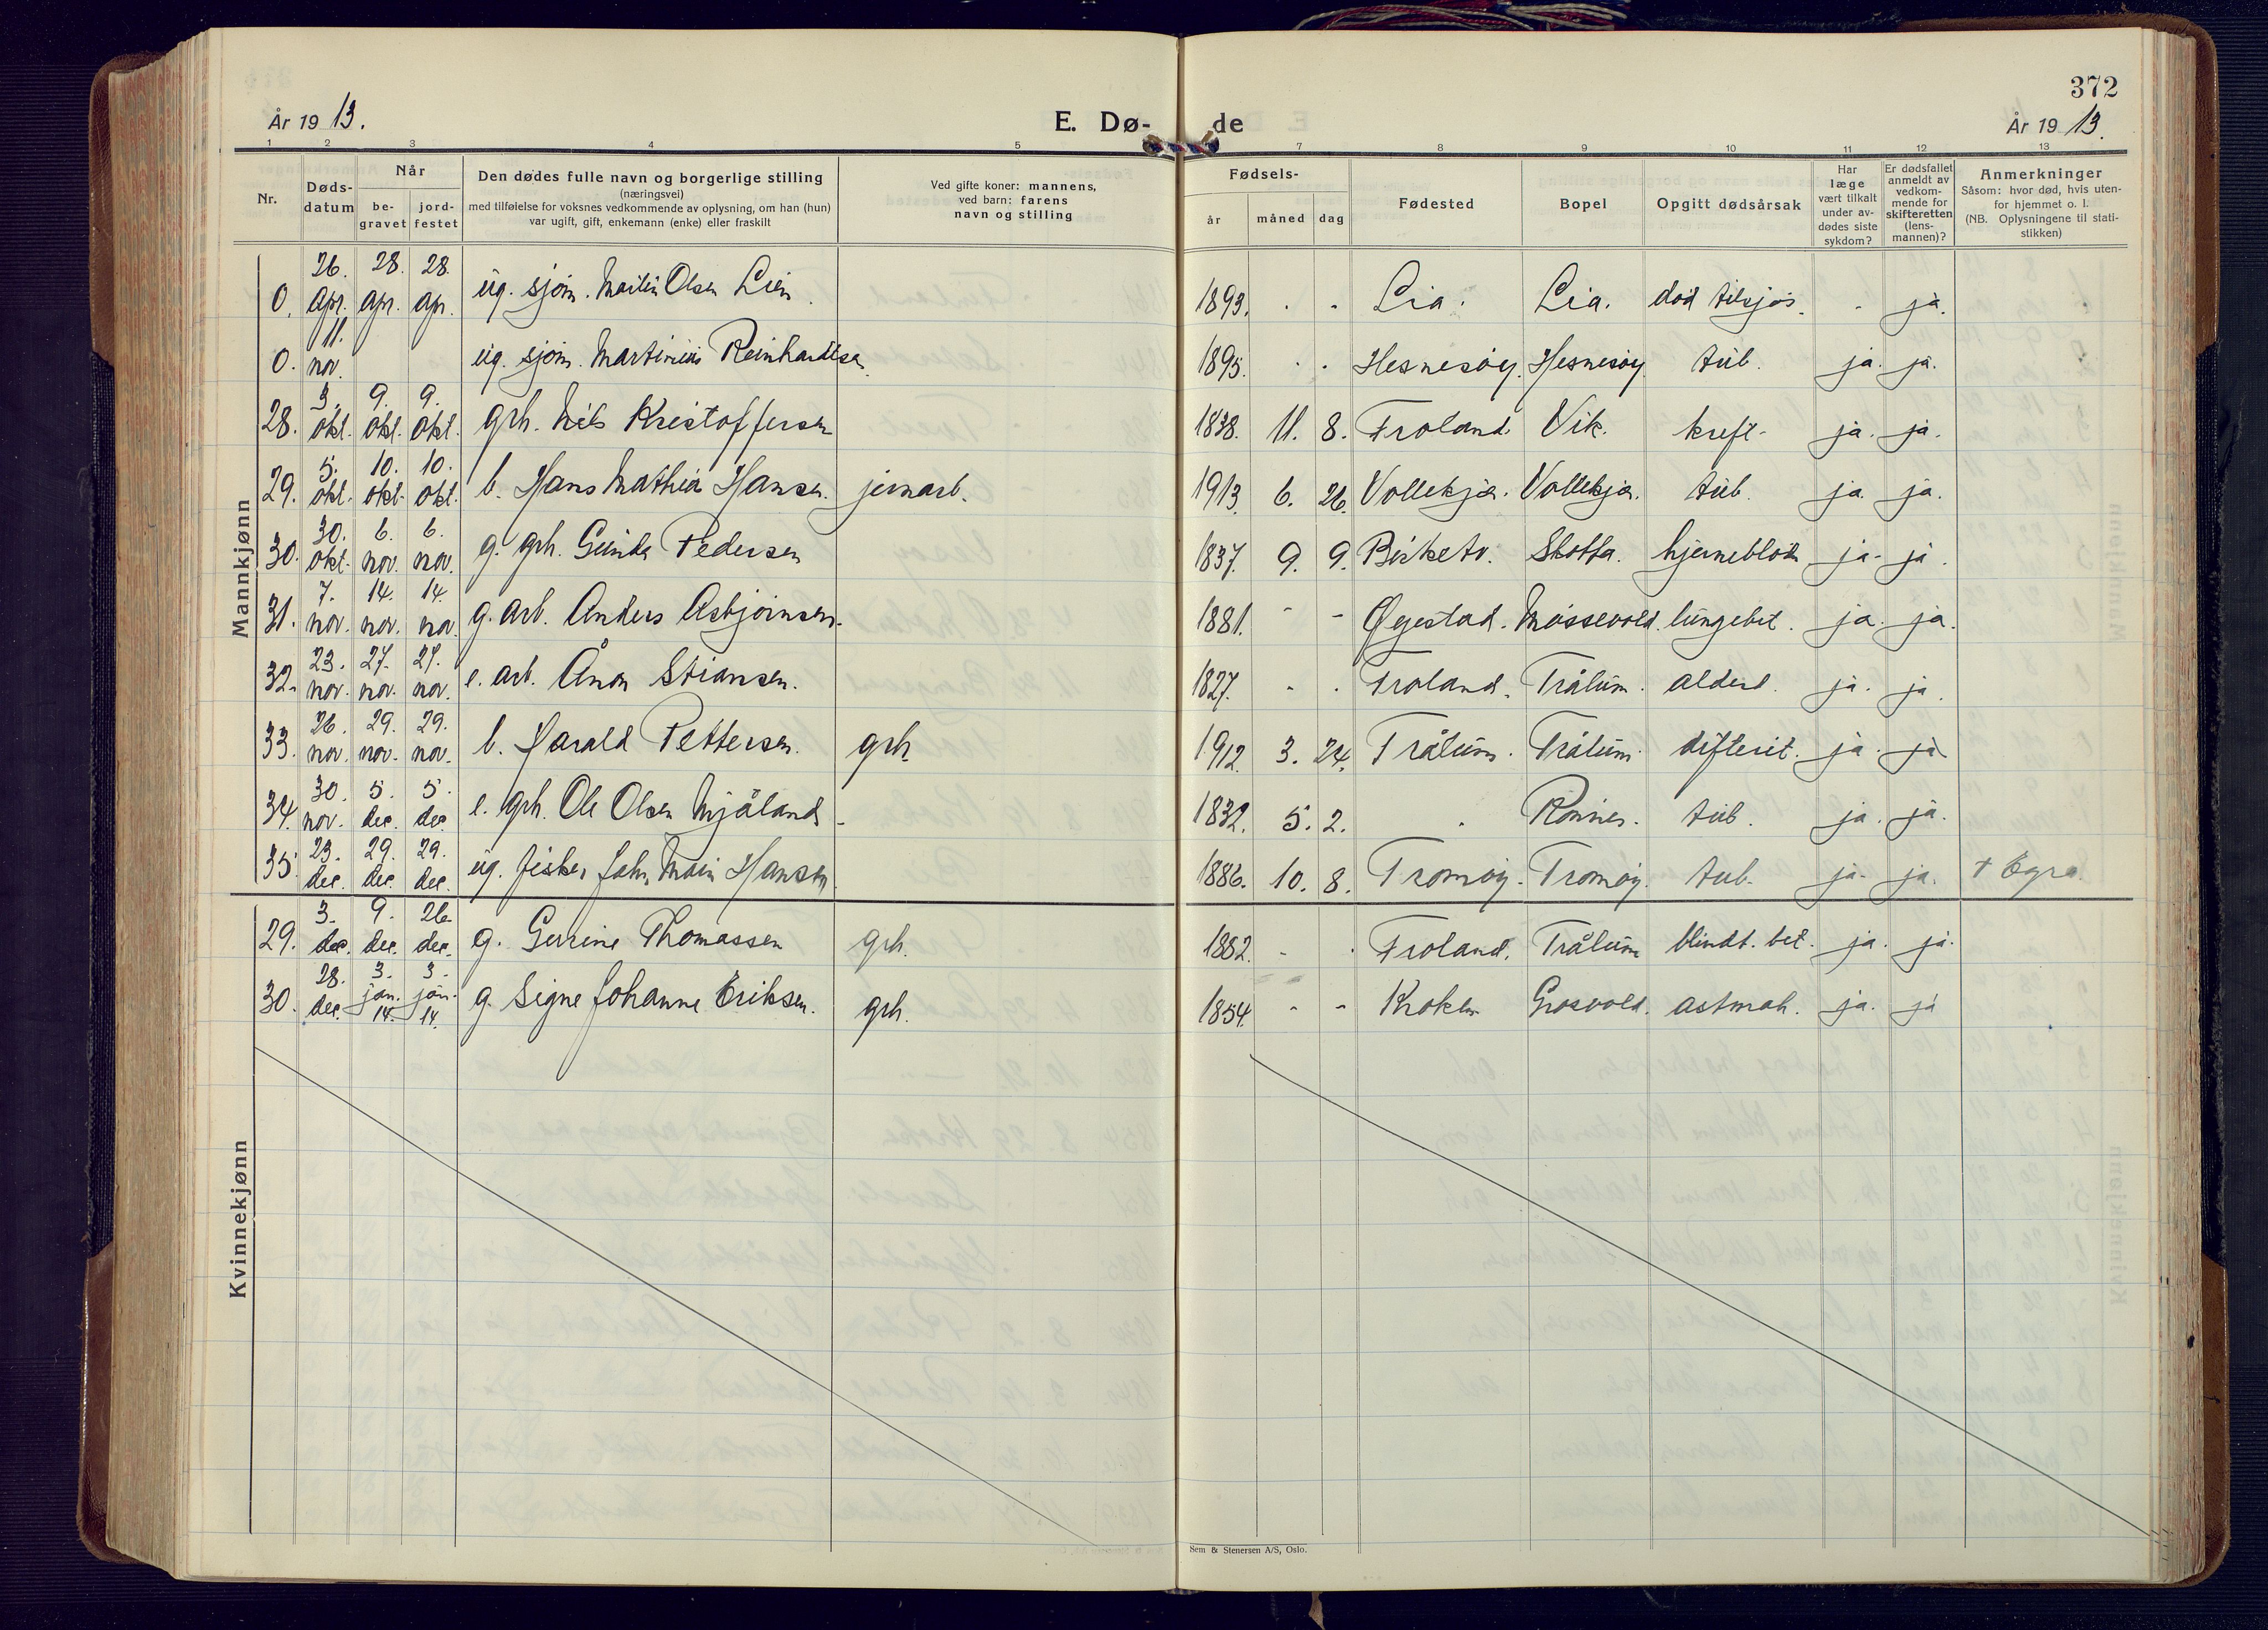 372
År 1913.
E. Dø-de
År 1913.
1 2 3 4 5 7 8 9 10 11 12 13
Nr.
Døds-datum
Når
be-gravet
jord-festet
Den dødes fulle navn og borgerlige stilling
(næringsvei)
med tilføielse for voksnes vedkommende av oplysning, om han (hun)
var ugift, gift, enkemann (enke) eller fraskilt
Ved gifte koner: mannens,
ved barn: farens
navn og stilling
Fødsels-
år måned dag
Fødested
Bopel
Opgitt dødsårsak
Har læge vært tilkalt under av-dødes siste sykdom?
Er dødsfallet anmeldt av vedkom-mende for skifteretten (lens-mannen)?
Anmerkninger
Såsom: hvor død, hvis uten-
for hjemmet o. l.
(NB. Oplysningene til stati-
stikken)
Mannkjønn
0. 26. apr. 28. apr. 28. apr. ug. sjøm. Martin Olsen Lien. 1893. - - Lia. Lia. død tilsjøs. - ja.
0. 11. nov. ug. sjøm. Martinius Reinhardtsen 1895. - - Hesnesøy. Hesnesøy. tub. ja. ja.
28. 3. okt. 9. okt. 9. okt. grh. Nils Kristoffersen 1838. 11. 8. Froland. Vik. kreft. ja. ja.
29. 5. okt. 10. okt. 10. okt. b. Hans Mathias Hansen. jernarb. 1913. 6. 26. Vollekjær. Vollekjær. tub. ja. ja.
30. 30. okt. 6. nov. 6. nov. g. grh. Gunder Pedersen 1837. 9. 9. Birketv. Skotta. hjerneblødn. ja. ja.
31. 7. nov. 14. nov. 14. nov. g. arb. Anders Asbjørnsen. 1881. - - Øyestad. Mossevold. lungebet. ja. ja.
32. 23. nov. 27. nov. 27. nov. e. arb. Ånon Stiansen. 1827. - - Froland. Trålum. alderd. ja. ja.
33. 26. nov. 29. nov. 29. nov. b. Harald Pettersen. grh. 1912. 3. 24. Trålum. Trålum. difterit. ja. ja
34. 30. nov. 5. dec. 5. dec. e. grh. Ole Olsen Mjåland. 1832. 5. 2. - Rønnes. tub. ja. ja.
35. 23. dec. 29. dec. 29. dec. ug. fisker John Hansen. 1886. 10. 8. Tromøy. Tromøy. tub. ja. ja. + Egra.
Kvinnekjønn
29. 3. dec. 9. dec. 26. dec. g. Gurine Thomassen grh. 1882. - - Froland. Trålum blindt. bet. ja. ja.
30. 28. dec. 3. jan. 14. 3. jan. 14. g. Signe Johanne Eriksen. grh. 1854. - - Kroken Grosvold. astmah. ja. ja
Sem & Stenersen A/S, Oslo.